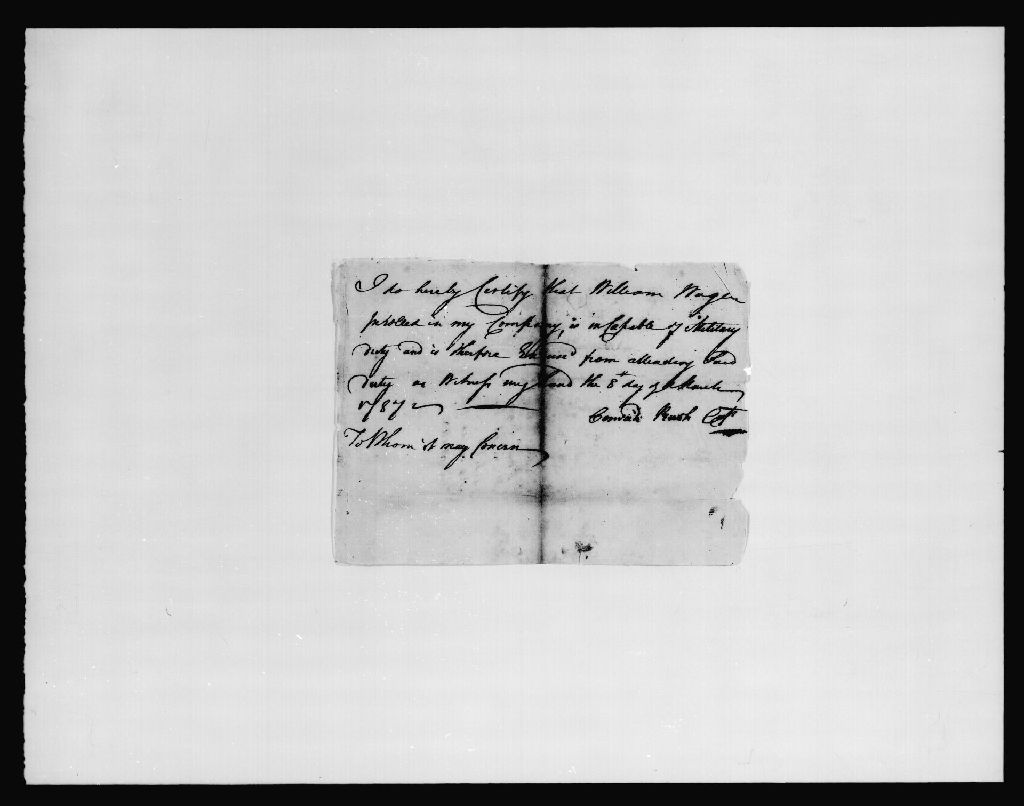 I do hereby Certify that William Wagle
Inroled in my Company, is inCapable of Military
duty and is Therfore Excused from attending Said
duty as Witness my hand the 8th day of March
1787
Conradt Bush Cpt
To Whom it may Concern